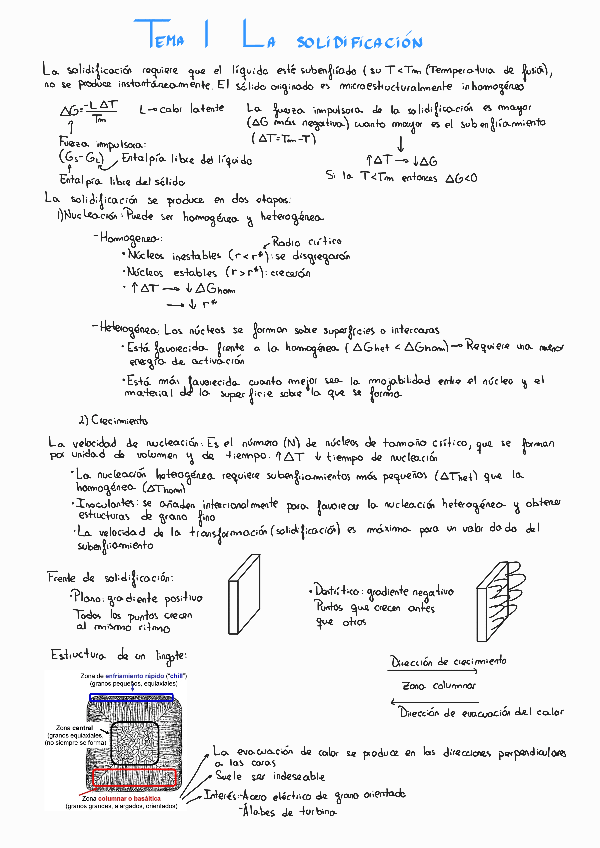 TEMA 1 LA SOLIDIFICACIÓN
La solidificación requiere que el líquido esté subenfriado (su T<Tm (Temperatura de fusión),
no se produce instantáneamente. El sólido originado es microestructuralmente inhomogéneo
ΔG = -L ΔT / Tm
L → calor latente
La fuerza impulsora de la solidificación es mayor
(ΔG más negativa) cuanto mayor es el subenfriamiento
(ΔT=Tm-T)
Fuerza impulsora:
(Gs-GL) Entalpía libre del líquido
Entalpía libre del sólido
↑ΔT → ↓ΔG
Si la T<Tm entonces ΔG<0
La solidificación se produce en dos etapas:
1) Nucleación: Puede ser homogénea y heterogénea
- Homogénea:
Radio crítico
• Núcleos inestables (r<r*): se disgregarán
• Núcleos estables (r>r*): crecerán
• ↑ΔT → ↓ΔGhom
→ ↓ r*
- Heterogénea: Los núcleos se forman sobre superficies o intercaras
• Está favorecida frente a la homogénea (ΔGhet < ΔGhom) → Requiere una menor
energía de activación
• Está más favorecida cuanto mejor sea la mojabilidad entre el núcleo y el
material de la superficie sobre la que se forma
2) Crecimiento
La velocidad de nucleación: Es el número (N) de núcleos de tamaño crítico, que se forman
por unidad de volumen y de tiempo. ↑ΔT ↓ tiempo de nucleación
• La nucleación heterogénea requiere subenfriamientos más pequeños (ΔThet) que la
homogénea (ΔThom)
• Inoculantes: se añaden intencionalmente para favorecer la nucleación heterogénea y obtener
estructuras de grano fino
• La velocidad de la transformación (solidificación) es máxima para un valor dado del
subenfriamiento
Frente de solidificación:
• Plano: gradiente positivo
Todos los puntos crecen
al mismo ritmo
• Dendrítico: gradiente negativo
Puntos que crecen antes
que otros
Estructura de un lingote:
Zona de enfriamiento rápido ("chill")
(granos pequeños, equiaxiales)
Zona central
(granos equiaxiales,
(no siempre se forma)
Zona columnar o basáltica
(granos grandes, alargados, orientados)
Dirección de crecimiento
Zona columnar
Dirección de evacuación del calor
La evacuación de calor se produce en las direcciones perpendiculares
a las caras
Suele ser indeseable
Interés: - Acero eléctrico de grano orientado
- Álabes de turbina